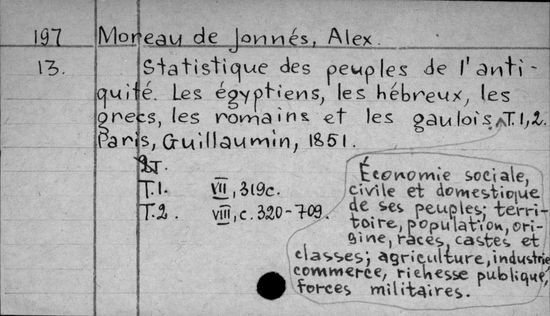 197 Moreau de Jonnés, Alex.
13. Statistique des peuples de l'anti-
quité. Les égyptiens, les hébreux, les
grecs, les romains et les gaulois. T.1,2.
Paris, Guillaumin, 1851.
2T.
T.1. VII, 319c.
T.2. VIII, c. 320-709.
Économie sociale,
civile et domestique
de ses peuples; terri-
toire, population, ori-
gine, races, castes et
classes; agriculture, industrie
commerce, richesse publique,
forces militaires.